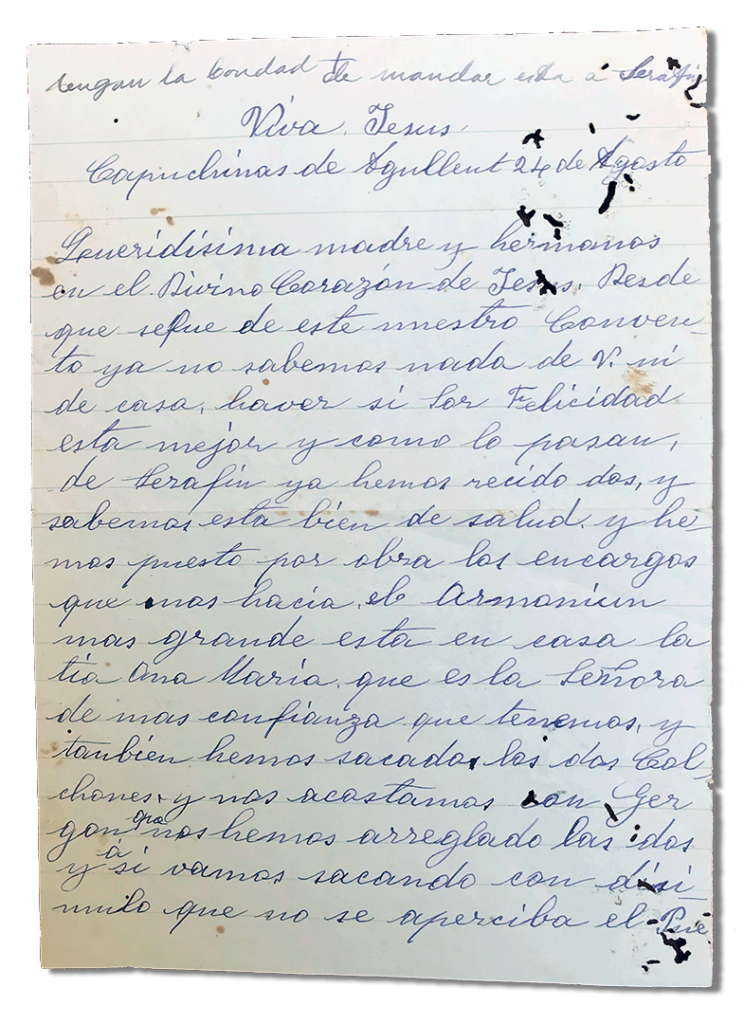 tengan la bondad de mandar esta á Serafin
Viva Jesus.
Capuchinas de Agullent 24 de Agosto
Queridisima madre y hermanos
en el Divino Corazón de Jesus. Desde
que se fue de este nuestro Conven-
to ya no sabemos nada de V. ni
de casa, haver si Sor Felicidad
esta mejor y como lo pasan,
de Serafin ya hemos recido dos, y
sabemos esta bien de salud. y he-
mos puesto por obra los encargos
que nos hacia, el Armoniun
mas grande esta en casa la
tia Ana Maria, que es la Señora
de mas confianza que tenemos, y
tanbien hemos sacado, los dos Col-
chones, y nos acostamos con Ger
gon que nos hemos arreglado las dos
y á si vamos sacando con disi-
mulo que no se aperciba el Pue